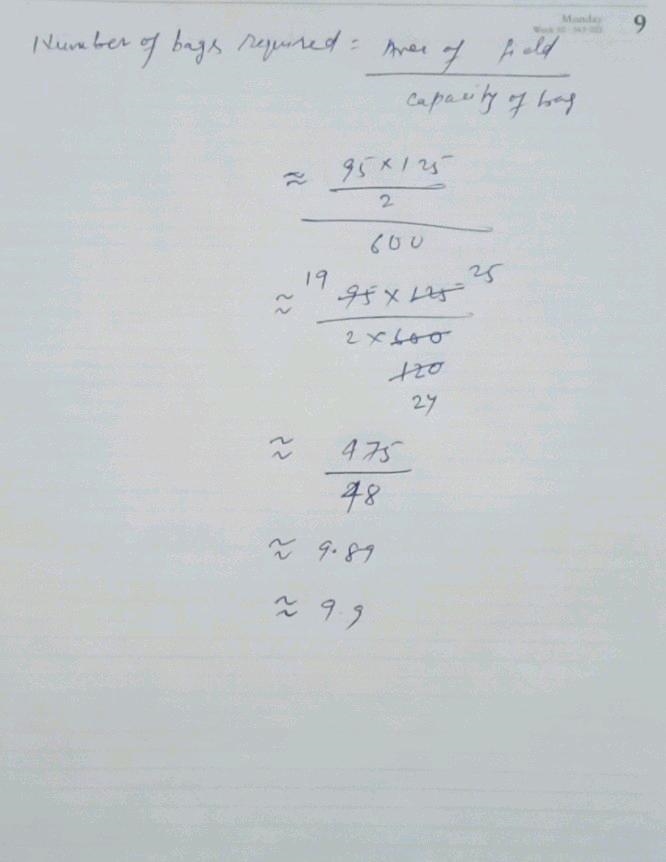 Monday
9
Number of bags required = Area of field
capacity of bag
≈ 95 × 125
2
600
≈ 19 95 × 125 25
2 × 600
120
24
≈ 475
48
≈ 9.89
≈ 9.9